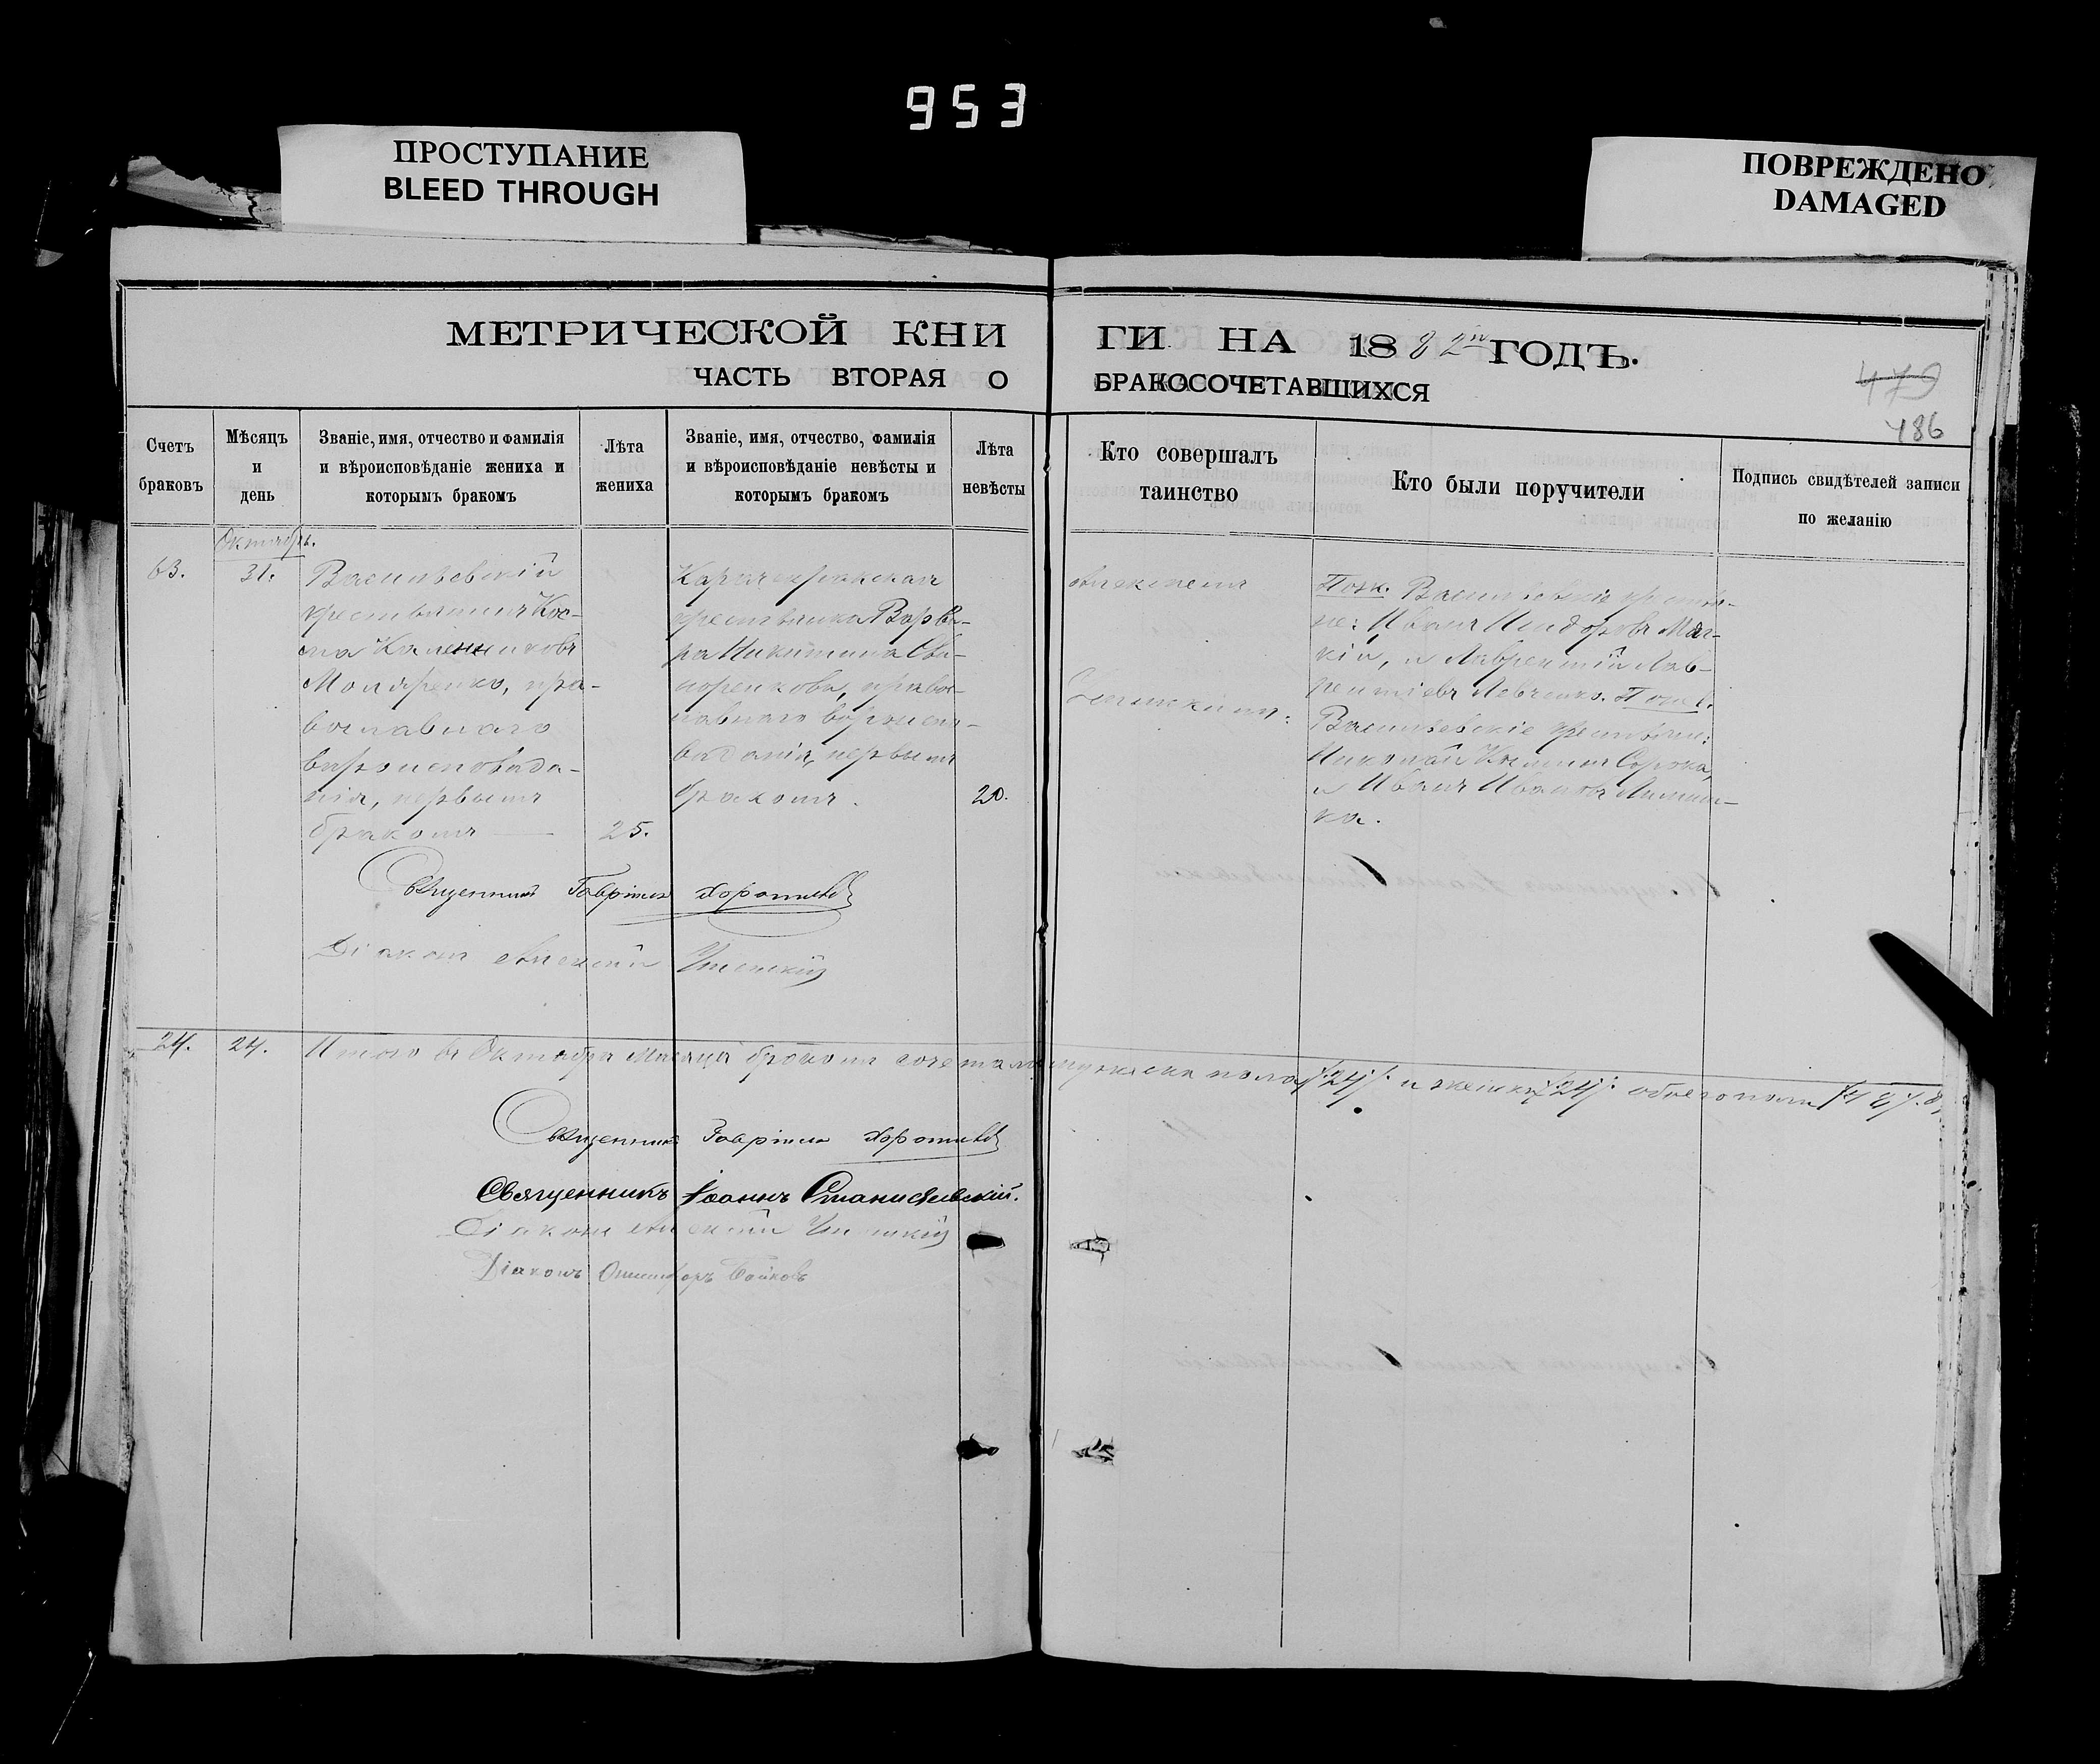 953
ПРОСТУПАНИЕ
BLEED THROUGH
ПОВРЕЖДЕНО
DAMAGED
МЕТРИЧЕСКОЙ КНИ
ГИ НА 1882й ГОДЪ.
ЧАСТЬ ВТОРАЯ О
БРАКОСОЧЕТАВШИХСЯ
479
486
Счетъ
браковъ
Мѣсяцъ
и
день
Званіе, имя, отчество и фамилія
и вѣроисповѣданіе жениха и
которымъ бракомъ
Лѣта
жениха
Званіе, имя, отчество, фамилія
и вѣроисповѣданіе невѣсты и
которымъ бракомъ
Лѣта
невѣсты
Кто совершалъ
таинство
Кто были поручители
Подпись свидѣтелей записи
по желанію
Октябрь.
63.
31.
Васильевскій
крестьянинъ Кос-
ма Калениковъ
Моляренко, пра-
вославнаго
вѣроисповѣда-
нія, первымъ
бракомъ
25.
крестьянка Варва-
ра Никитина Сви-
норенкова, правос-
лавнаго вѣроиспо-
вѣданія, первымъ
бракомъ.
20.
Пож. Васильевскіе крестья-
не: Иванъ Исидоровъ Мяг-
кій, и Лаврентій Лав-
рентіевъ Левченко. По нев.
Васильевскіе крестьяне:
Николай Косминъ Сорока,
и Иванъ Ивановъ
ка.
Священникъ Гавріилъ
Діаконъ Алексій
24.
24.
Итого въ Октябрѣ Мѣсяцѣ бракомъ сочетались мужеска пола /:24/: и женска /:24/: обоего пола /:48/:
Священникъ Гавріилъ
Священникъ Іоаннъ Станиславскій.
Діаконъ Алексій
Діаконъ Онисифоръ Бойковъ